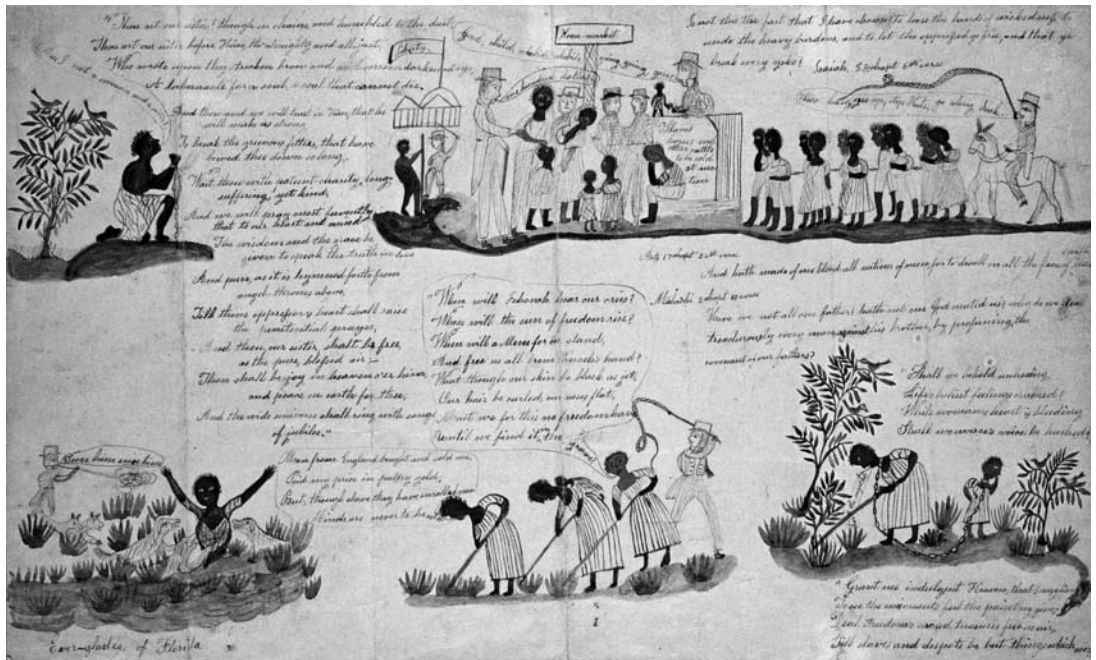 "Thou art our sister! though in chains and humbled to the dust,
Thou art our sister before Him, the almighty and all just,
Who wrote upon thy broken brow and
A tabernacle for a soul, a soul that cannot die.
And thou and we will trust in Him, that he
will make us strong
To break the grievous fetters, that have
bowed thee down so long.
Wait thou with patient charity, long
suffering, yet kind,
And we will pray most fervently
that to our heart and mind
The wisdom and the grace be
given to speak the truth in love
And pure, as it is hymned forth from
angel thrones above,
Till thine oppressors heart shall raise
the penitential prayer,
And thou, our sister, shalt be free,
as the pure, blessed air:—
There shall be joy in heaven over him,
and peace on earth for thee,
And the wide universe shall ring with songs
of jubilee."
am I not a woman and a sister
Liberty
hundred dollars
going going gone
Horse market
Slaves
horses and
other cattle
to be sold
at auc
tion
Is not this the fast that I have chosen? to loose the bands of wickedness, to
undo the heavy burdens, and to let the oppressed go free, and that ye
break every yoke? Isaiah, 58 chapt 6th verse
Acts 17 chapt 26th verse
And hath made of one blood all nations of men, for to dwell on all the face of
Malachi 2 chapt 10 verse
Have we not all one father? hath not one God created us? why do we deal
treacherously every man against his brother, by profaning the
covenant of our fathers?
"When will Jehovah hear our cries?
When will the sun of freedom rise?
When will a Moses for us stand,
And free us all from Pharaoh's hand?
What though our skin be black as jet,
Our hair be curled, our noses flat,
Must we for this no freedom have
Until we find it in the
grave?
Men from England bought and sold me,
Paid my price in paltry gold;
But, though slave they have enrolled me
Minds are never to be
"Shall we behold unheeding,
Life's holiest feelings crushed?
While woman's heart is bleeding
Shall woman's voice be hushed?
"Grant me indulgent Heaven, that I may live
To see the miscreants feel the pains they give;
Deal Freedom's sacred treasures free as air,
Till slave and despot be but things which were
Ever-glades of Florida